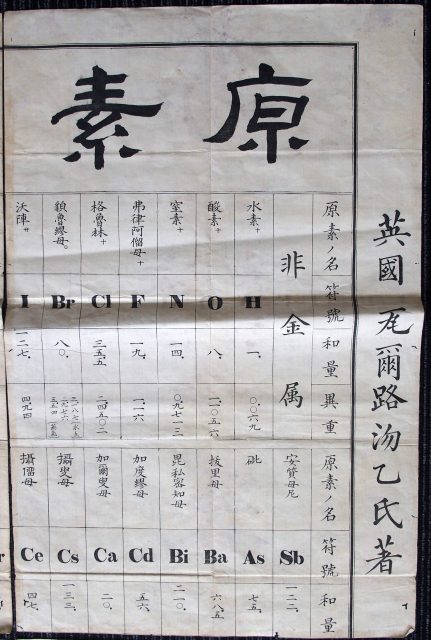 原素
英國
爾路
乙氏著
原素ノ名
符號
和量
異重
非金属
水素+
H
一、
〇、〇六九
酸素+
O
八、
一、一〇五六
窒素+
N
一四、
〇、九七一三
弗律阿儒母+
F
一九、
格魯林+
Cl
三五、五
二、四五〇二
Br
八〇、
沃陣+
I
一二七、
四、九四
原素ノ名
符號
和量
安質母尼
Sb
一二二、
砒
As
七五、
抜里母
Ba
六八、五
毘私密知母
Bi
二一〇、
加度繆母
Cd
五六、
加爾叟母
Ca
二〇、
攝叟母
Cs
一三三、
攝儒母
Ce
四七、